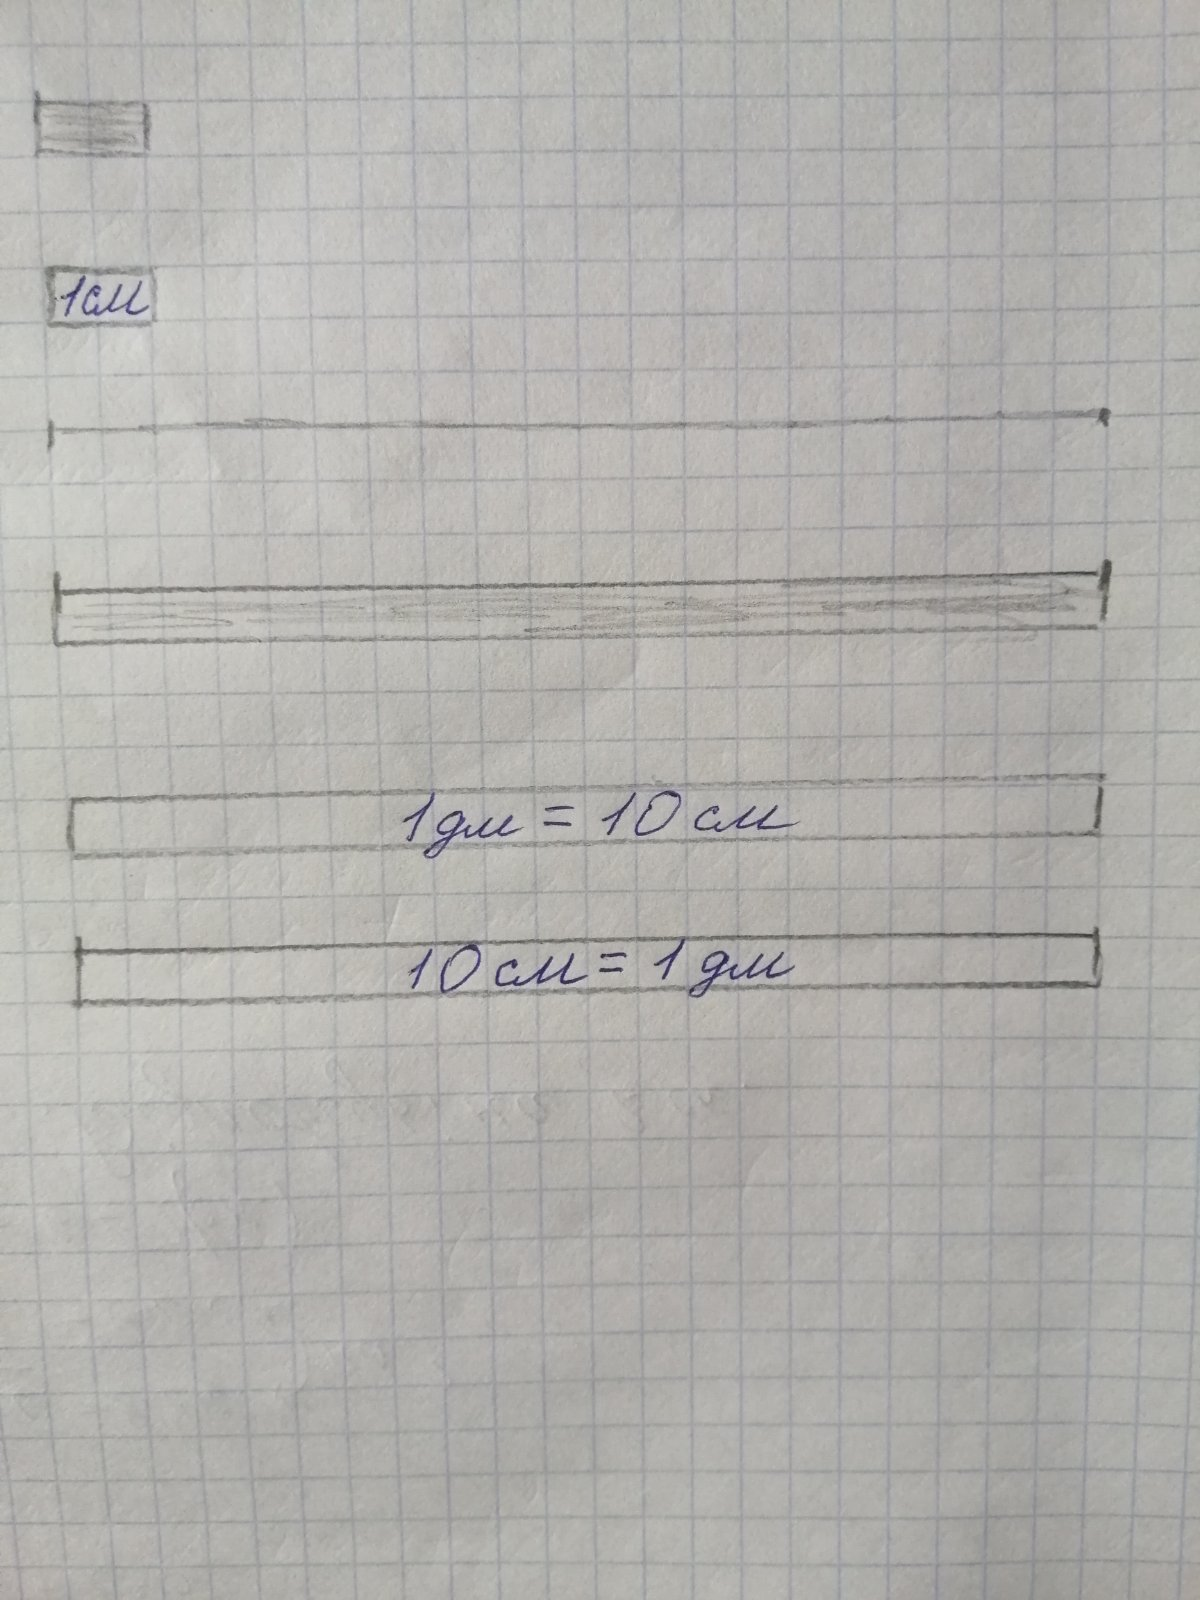 1см
1дм = 10 см
10 см = 1 дм